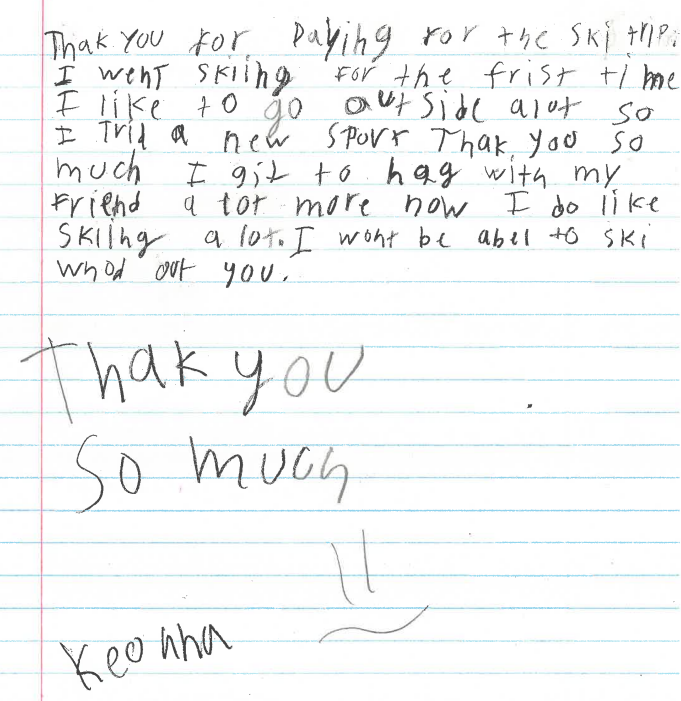 Thak you for paying for the ski trip.
I went skiing for the frist time
I like to go out side alot so
I Trid a new sport Thak you so
much I git to hag with my
friend a lot more now I do like
skiing a lot. I wont be abel to ski
whod out you.
Thak you
so much
Keonna